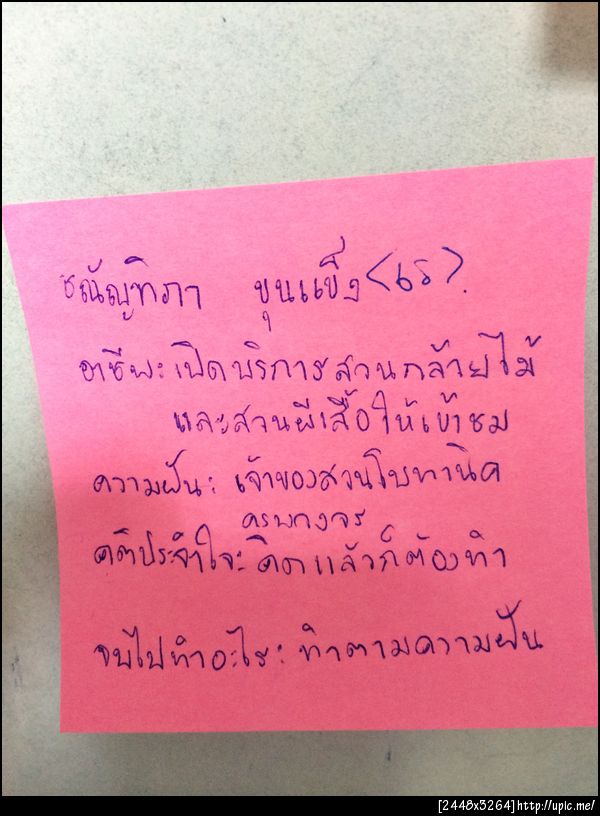 ชณัญทิภา ขุนแข็ง (เร).
อาชีพ: เปิดบริการสวนกล้วยไม้
และสวนผีเสื้อให้เข้าชม
ความฝัน: เจ้าของสวนโบทานิค
ครบวงจร
คติประจำใจ: คิดแล้วก็ต้องทำ
จบไปทำอะไร: ทำตามความฝัน
[2448x3264]http://upic.me/